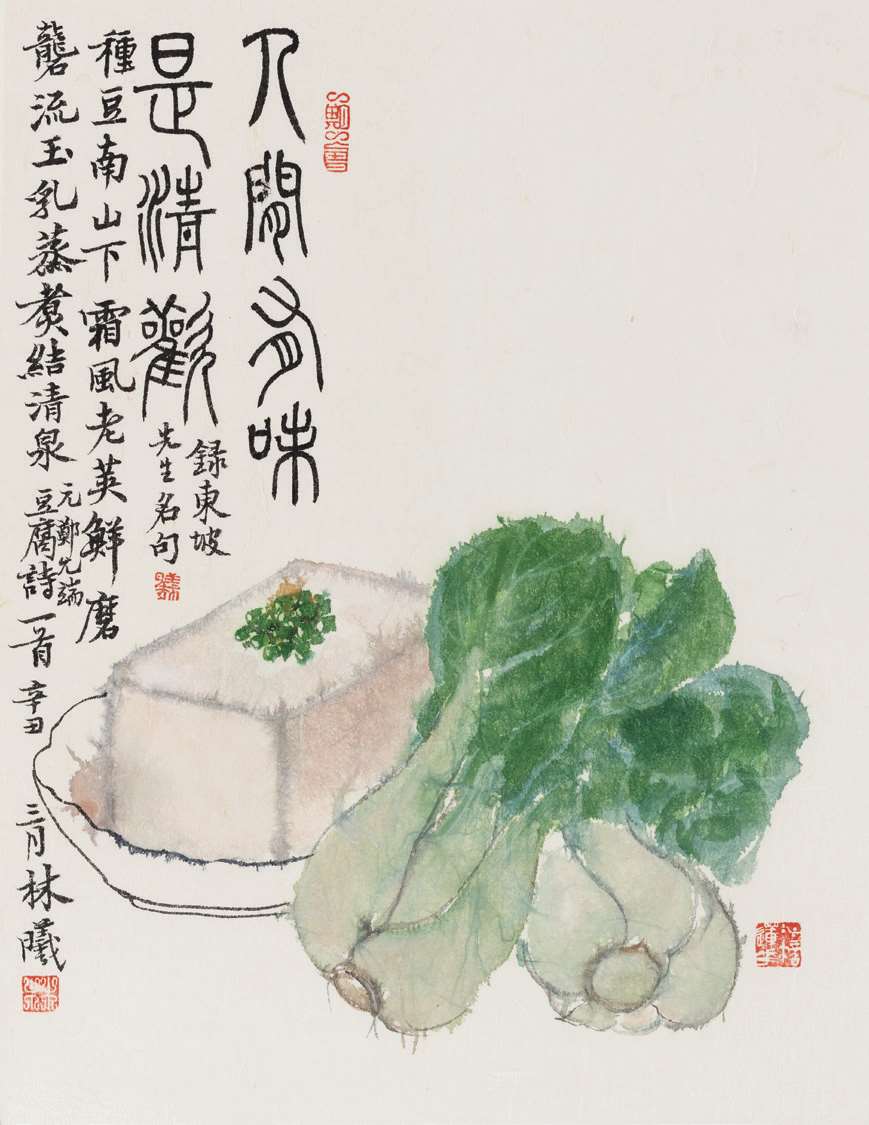 人間有味
是清歡
録東坡
先生名句
種豆南山下霜風老莢鮮磨
礱流玉乳蒸煑結清泉
元鄭允端
豆腐詩
一首辛丑三月林曦